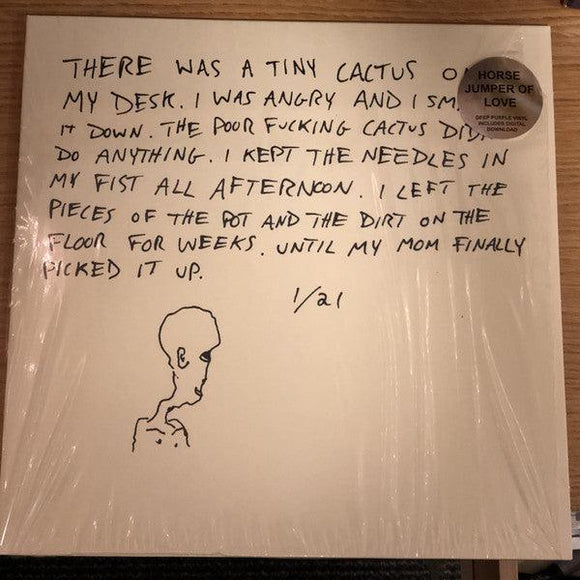 THERE WAS A TINY CACTUS
MY DESK. I WAS ANGRY AND I
IT DOWN. THE POOR FUCKING CACTUS
DO ANYTHING. I KEPT THE NEEDLES IN
MY FIST ALL AFTERNOON. I LEFT THE
PIECES OF THE POT AND THE DIRT ON THE
FLOOR FOR WEEKS. UNTIL MY MOM FINALLY
PICKED IT UP.
1/21
HORSE
JUMPER OF
LOVE
DEEP PURPLE VINYL
INCLUDES DIGITAL
DOWNLOAD